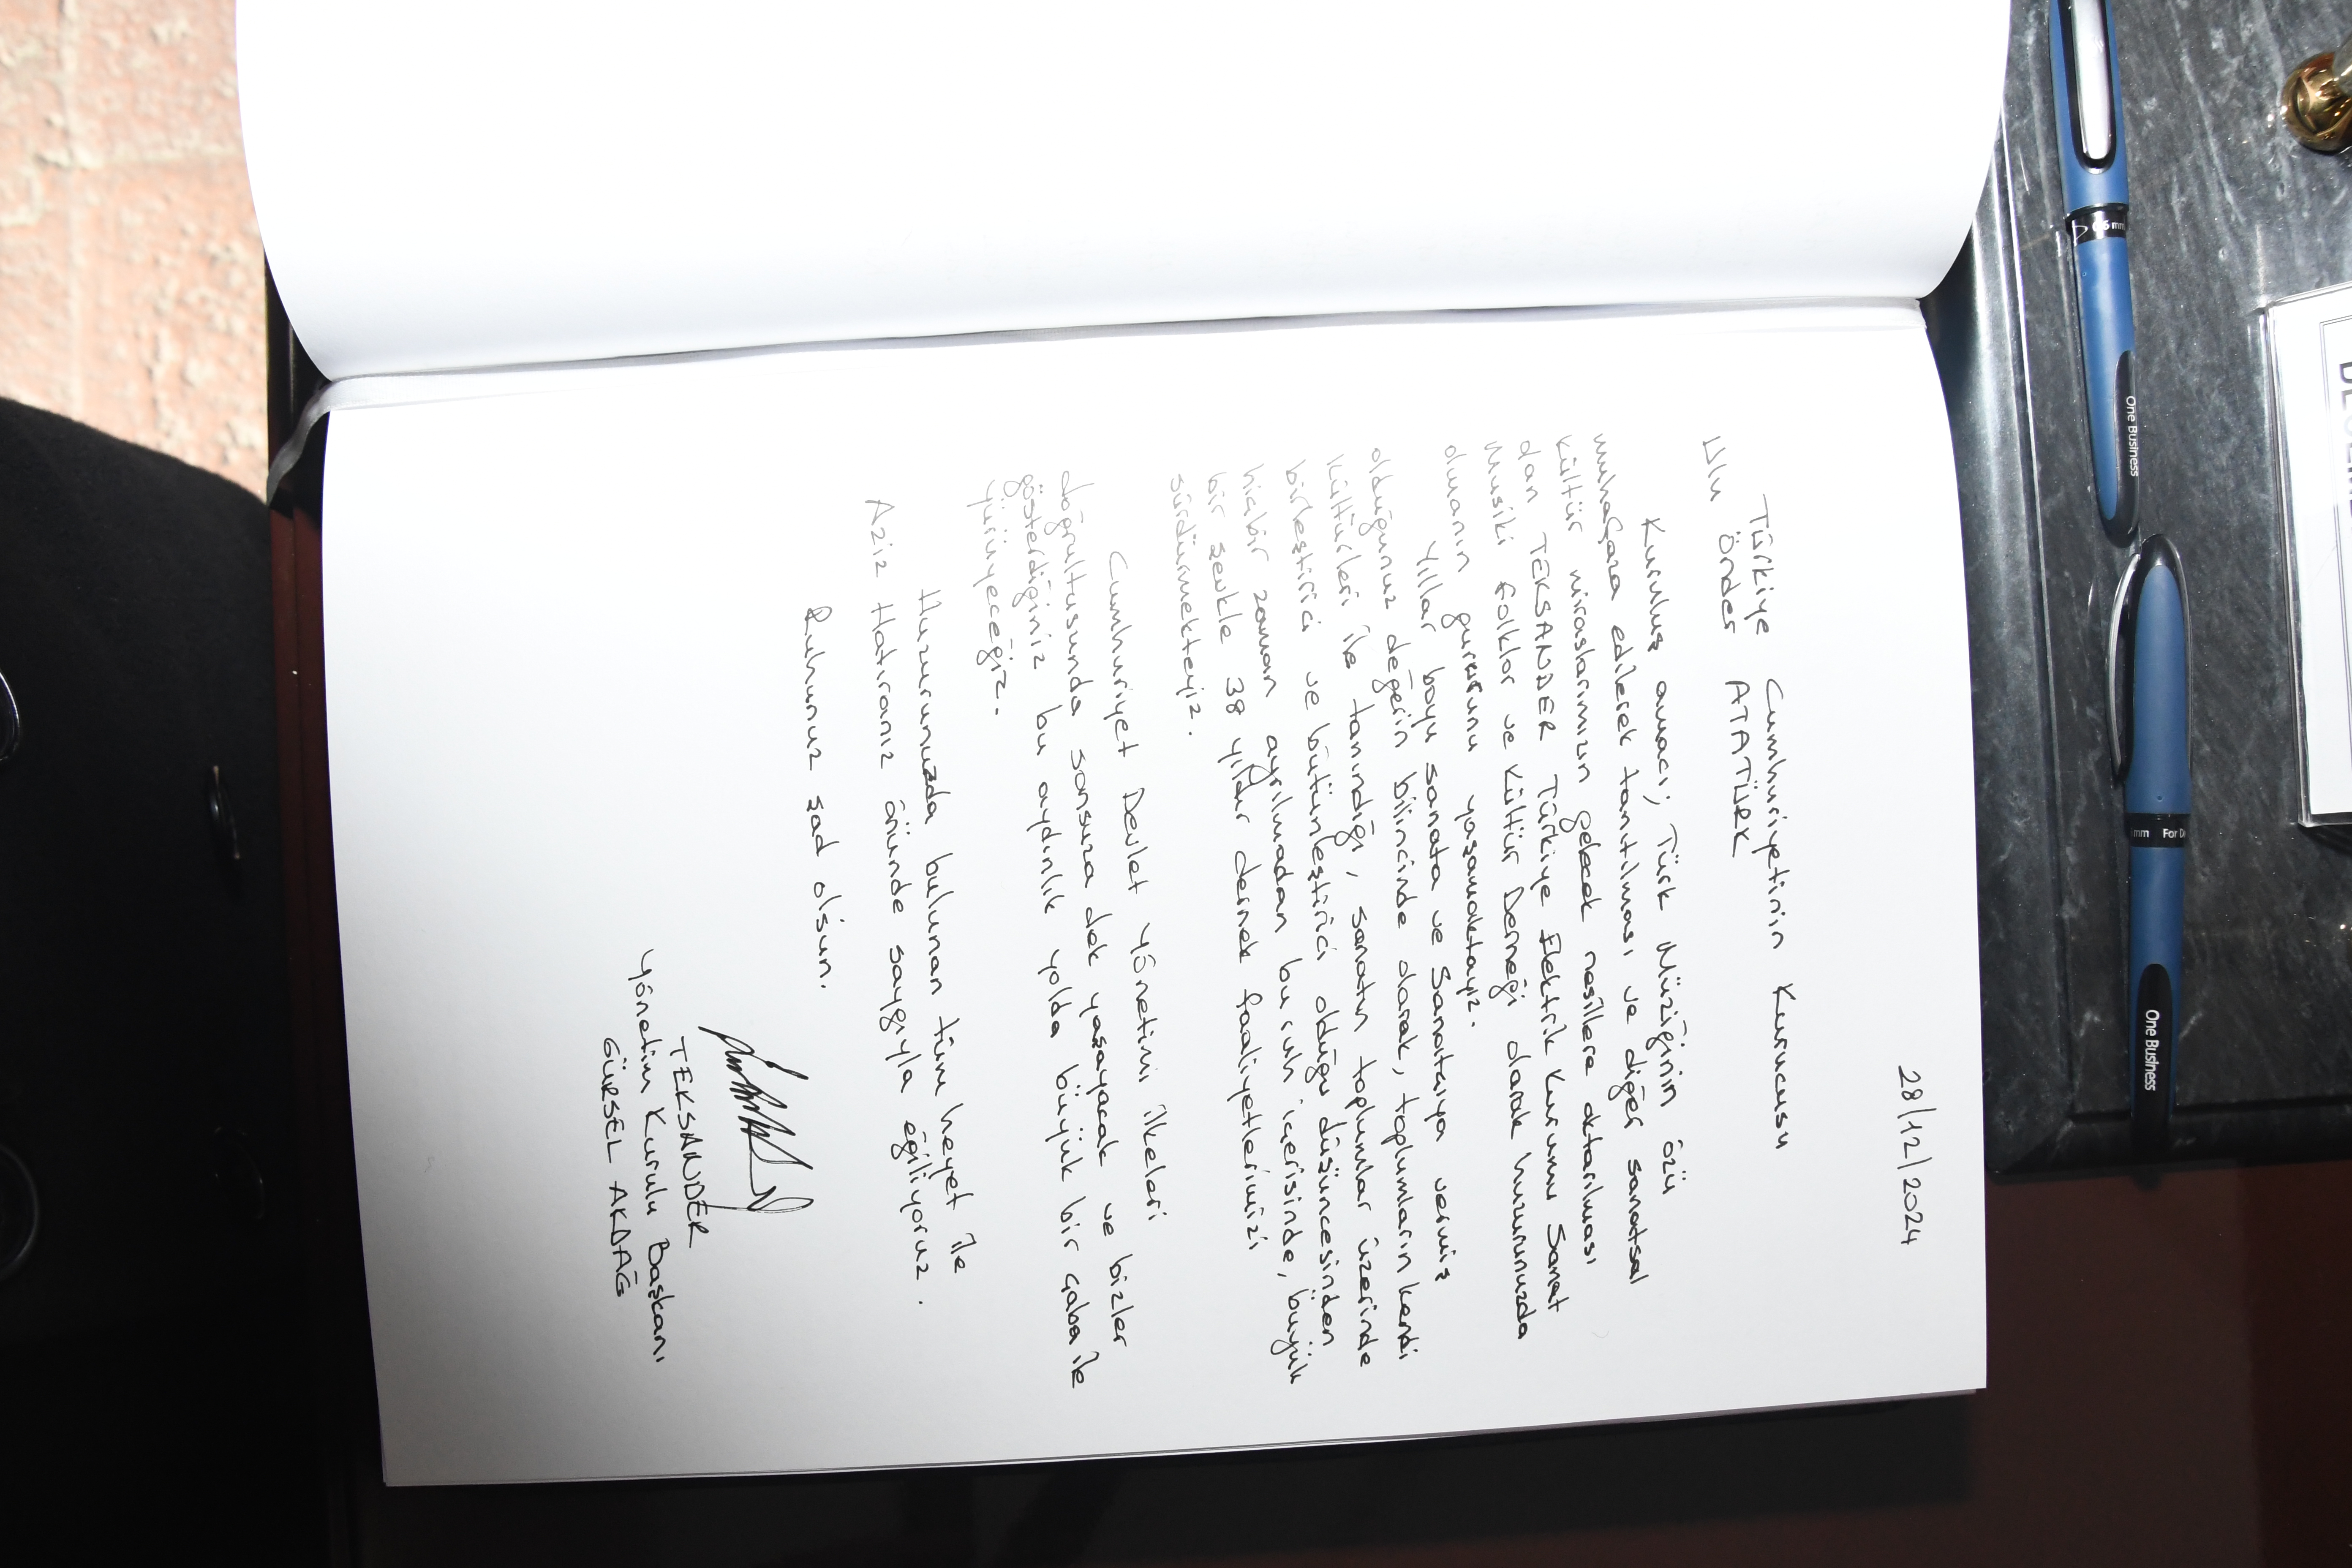 28/12/2024
Türkiye Cumhuriyetinin Kurucusu
Ulu Önder ATATÜRK
Kuruluş amacı; Türk Müziğinin özü
muhafaza edilerek tanıtılması ve diğer sanatsal
kültür miraslarımızın gelecek nesillere aktarılması
dan TEKSANDER Türkiye Elektrik Kurumu Sanat
Musiki Folklor ve Kültür Derneği olarak huzurunuzda
olmanın gururunu yaşamaktayız.
Yıllar boyu sanata ve Sanatçıya vermiş
olduğunuz değerin bilincinde olarak, toplumların kendi
kültürleri ile tanındığı, sanatın toplumlar üzerinde
birleştirici ve bütünleştirici olduğu düşüncesinden
hiçbir zaman ayrılmadan bu ruh içerisinde, büyük
bir şevkle 38 yıldır dernek faaliyetlerimizi
sürdürmekteyiz.
Cumhuriyet Devlet yönetimi ilkeleri
doğrultusunda sonsuza dek yaşayacak ve bizler
gösterdiğiniz bu aydınlık yolda büyük bir çaba ile
yürüyeceğiz.
Huzurunuzda bulunan tüm heyet ile
Aziz Hatıranız önünde saygıyla eğiliyoruz.
Ruhunuz şad olsun.
TEKSANDER
Yönetim Kurulu Başkanı
GÜRSEL AKDAĞ
0,5 mm
One Business
mm For D
One Business